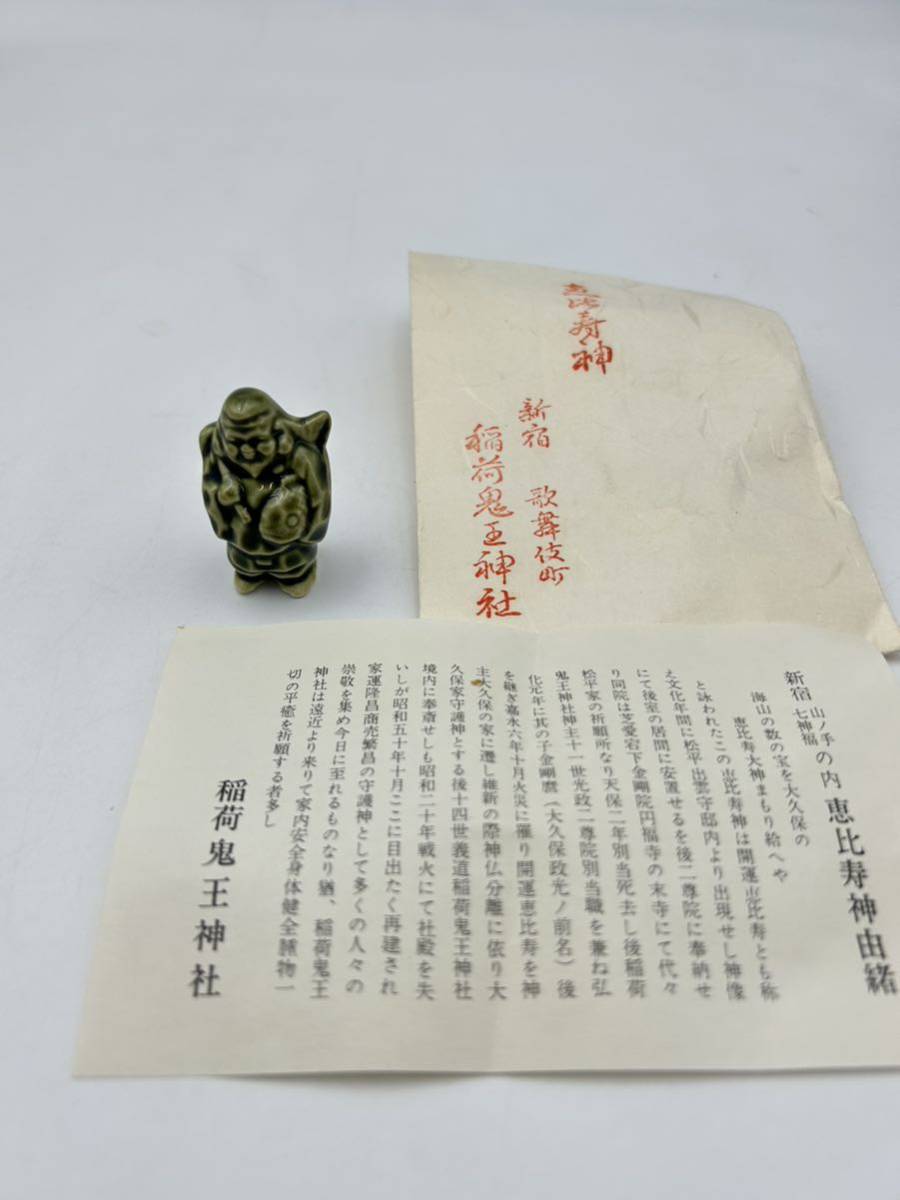 恵比寿神
新宿 歌舞伎町
稲荷鬼王神社
新宿山ノ手七神福の内 恵比寿神由緒
海山の数の宝を大久保の
恵比寿大神まもり給へや
と詠われたこの恵比寿神は開運恵比寿とも称
え文化年間に松平出雲守邸内より出現せし神像
にて後室の居間に安置せるを後二尊院に奉納せ
り同院は芝愛宕下金剛院円福寺の末寺にて代々
松平家の祈願所なり天保二年別当死去し後稲荷
鬼王神社神主十一世光政二尊院別当職を兼ね弘
化元年に其の子金剛麿(大久保政光ノ前名)後
を継ぎ嘉永六年十月火災に罹り開運恵比寿を神
主大久保の家に遷し維新の際神仏分離に依り大
久保家守護神とする後十四世義道稲荷鬼王神社
境内に奉斎せしも昭和二十年戦火にて社殿を失
いしが昭和五十年十月ここに目出たく再建され
家運隆昌商売繁昌の守護神として多くの人々の
崇敬を集め今日に至れるものなり猶、稲荷鬼王
神社は遠近より来りて家内安全身体健全腫物一
切の平癒を祈願する者多し
稲荷鬼王神社